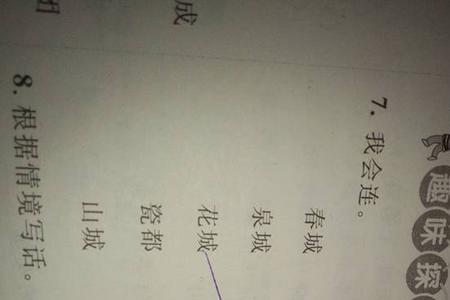 趣味探
7. 我会连。
春城
泉城
花城
成
瓷都
山城
8. 根据情境写话。